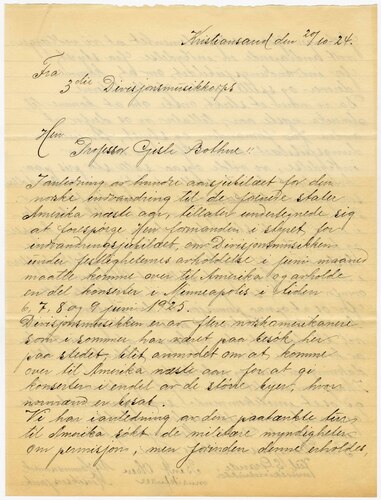 Kristiansand den 20/10-24.
Fra
3die Divisjonsmusikkorps
Herr
Professor Gisle Bothne!
I anledning av hundre aarsjubilæet for den
norske indvandring til de forenede stater
Amerika næste aar, tillater undertegnede sig
at forespørge Herr formanden i styret for
indvandringsjubilæet, om Divisjonsmusikken
under festlighetenes avholdelse i juni maaned
maatte komme over til Amerika og avholde
en del konserter i Minneapolis i tiden
6, 7, 8 og 9 juni 1925.
Divisjonsmusikken er av flere norskamerikanere
som i sommer har været paa besøk her
paa stedet, blit anmodet om at komme
over til Amerika næste aar for at gi
konserter i endel av de større byer, hvor
nordmænd er bosat.
Vi har i anledning av den paatænkte tur
til Amerika søkt de militære myndigheter
om permisjon; men forinden denne erholdes,